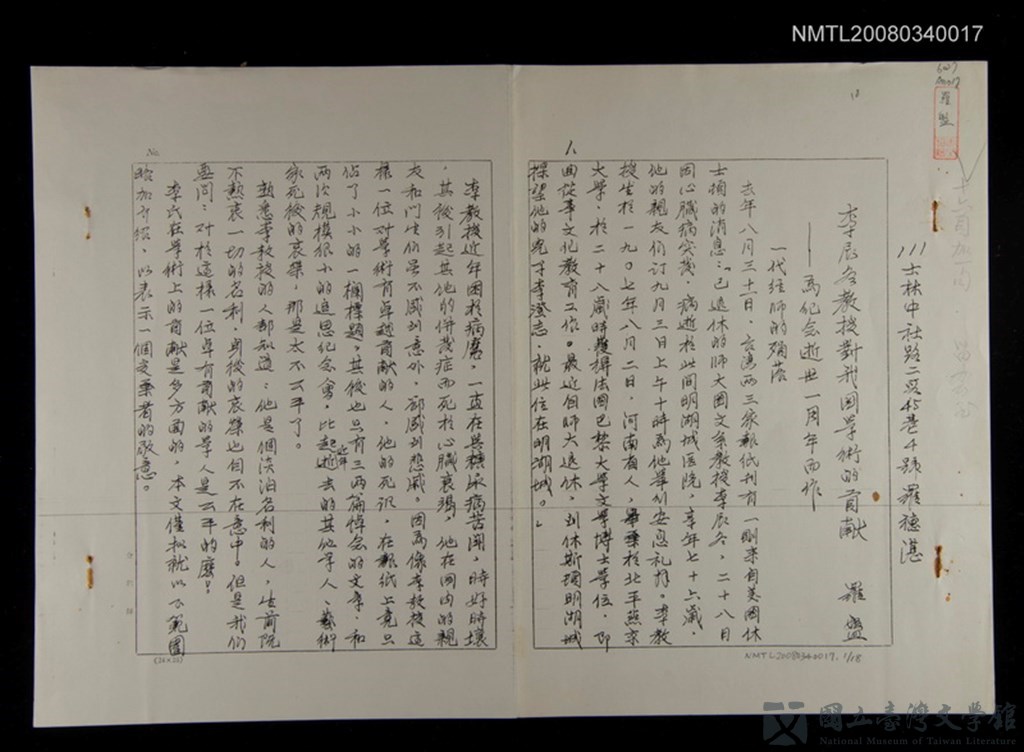 NMTL20080340017
羅盤
111士林中社路二段45巷4號 羅德湛
李辰冬教授對我國學術的貢献
——為紀念逝世一周年而作
羅盤
一代經師的殞落
去年八月三十一日，台灣兩三家報紙刊有一則來自美國休
士頓的消息：「已退休的師大國文系教授李辰冬，二十八日
因心臟病突發，病逝於此間明湖城医院，享年七十六歲。
他的親友們订九月三日上午十時為他舉行安息礼拜。李教
授生於一九〇七年八月二日，河南省人，畢業於北平燕京
大學，於二十八歲時獲得法國巴黎大學文學博士學位，即
回從事文化教育工作。最近自師大退休，到休斯頓明湖城
探望他的兒子李澄志，就此住在明湖城。」
No.
李教授近年因於病魔，一直在與糖尿病苦鬪，時好時壞
，其後引起其他的併發症而死於心臟衰竭，他在国内的親
友和門生們虽不感到意外，卻感到悲戚。因為像李教授這
樣一位对學術有卓越貢献的人，他的死訊，在報紙上竟只
佔了小小的一欄標題。其後也只有三兩篇悼念的文章，和
兩次規模很小的追思紀念會，比起近年逝去的其他學人、藝術
家死後的哀榮，那是太不公平了。
熟悉李教授的人都知道：他是個淡泊名利的人，生前既
不熱衷一切的名利，身後的哀榮也自不在意中。但是我們
要問：对於這樣一位卓有貢献的學人是公平的麼？
李氏在學術上的貢献是多方面的，本文僅擬就以下範圍
略加介紹，以表示一個受業者的敬意。
(24×25)
NMTL20080340017, 1/18
國立臺灣文學館
National Museum of Taiwan Literature